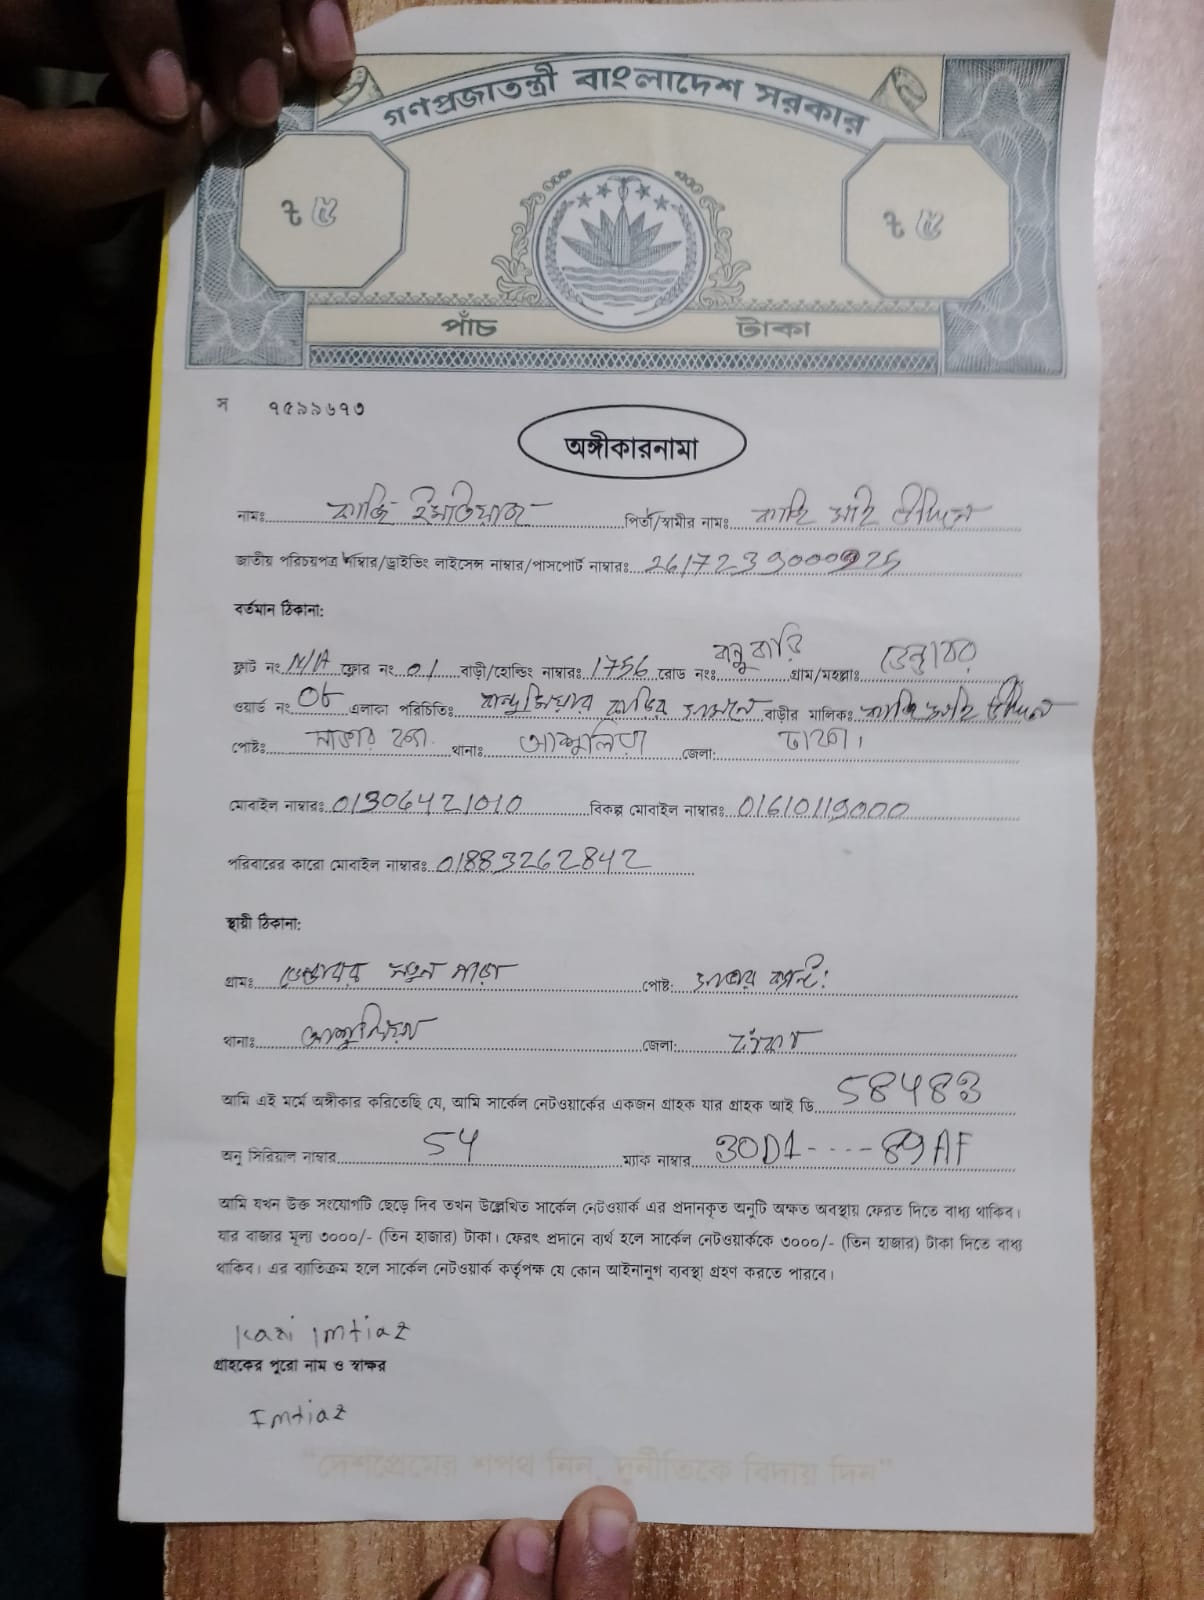 গণপ্রজাতন্ত্রী বাংলাদেশ সরকার
৳ ৫ ৳ ৫
পাঁচ টাকা
স ৭৫৯৯৬৭৩
অঙ্গীকারনামা
নামঃ কাজি ইমতিয়াজ পিতা/স্বামীর নামঃ কাজি
জাতীয় পরিচয়পত্র নাম্বার/ড্রাইভিং লাইসেন্স নাম্বার/পাসপোর্ট নাম্বারঃ
বর্তমান ঠিকানা:
ফ্লাট নং N/A ফ্লোর নং 01 বাড়ী/হোল্ডিং নাম্বারঃ 1756 রোড নংঃ গ্রাম/মহল্লাঃ
ওয়ার্ড নং 08 এলাকা পরিচিতিঃ বাড়ির সামনে বাড়ীর মালিকঃ কাজি
পোষ্টঃ সাভার থানাঃ আশুলিয়া জেলা: ঢাকা।
মোবাইল নাম্বারঃ 01306421010 বিকল্প মোবাইল নাম্বারঃ 01610119000
পরিবারের কারো মোবাইল নাম্বারঃ 01883262842
স্থায়ী ঠিকানা:
গ্রামঃ নতুন পাড়া পোষ্ট: সাভার
থানাঃ আশুলিয়া জেলা: ঢাকা
আমি এই মর্মে অঙ্গীকার করিতেছি যে, আমি সার্কেল নেটওয়ার্কের একজন গ্রাহক যার গ্রাহক আই ডি 58483
অনু সিরিয়াল নাম্বার 54 ম্যাক নাম্বার 30D1----89AF
আমি যখন উক্ত সংযোগটি ছেড়ে দিব তখন উল্লেখিত সার্কেল নেটওয়ার্ক এর প্রদানকৃত অনুটি অক্ষত অবস্থায় ফেরত দিতে বাধ্য থাকিব।
যার বাজার মূল্য ৩০০০/- (তিন হাজার) টাকা। ফেরৎ প্রদানে ব্যর্থ হলে সার্কেল নেটওয়ার্ককে ৩০০০/- (তিন হাজার) টাকা দিতে বাধ্য
থাকিব। এর ব্যতিক্রম হলে সার্কেল নেটওয়ার্ক কর্তৃপক্ষ যে কোন আইনানুগ ব্যবস্থা গ্রহণ করতে পারবে।
Kazi Imtiaz
গ্রাহকের পুরো নাম ও স্বাক্ষর
Imtiaz
"দেশপ্রেমের শপথ নিন, দুর্নীতিকে বিদায় দিন"